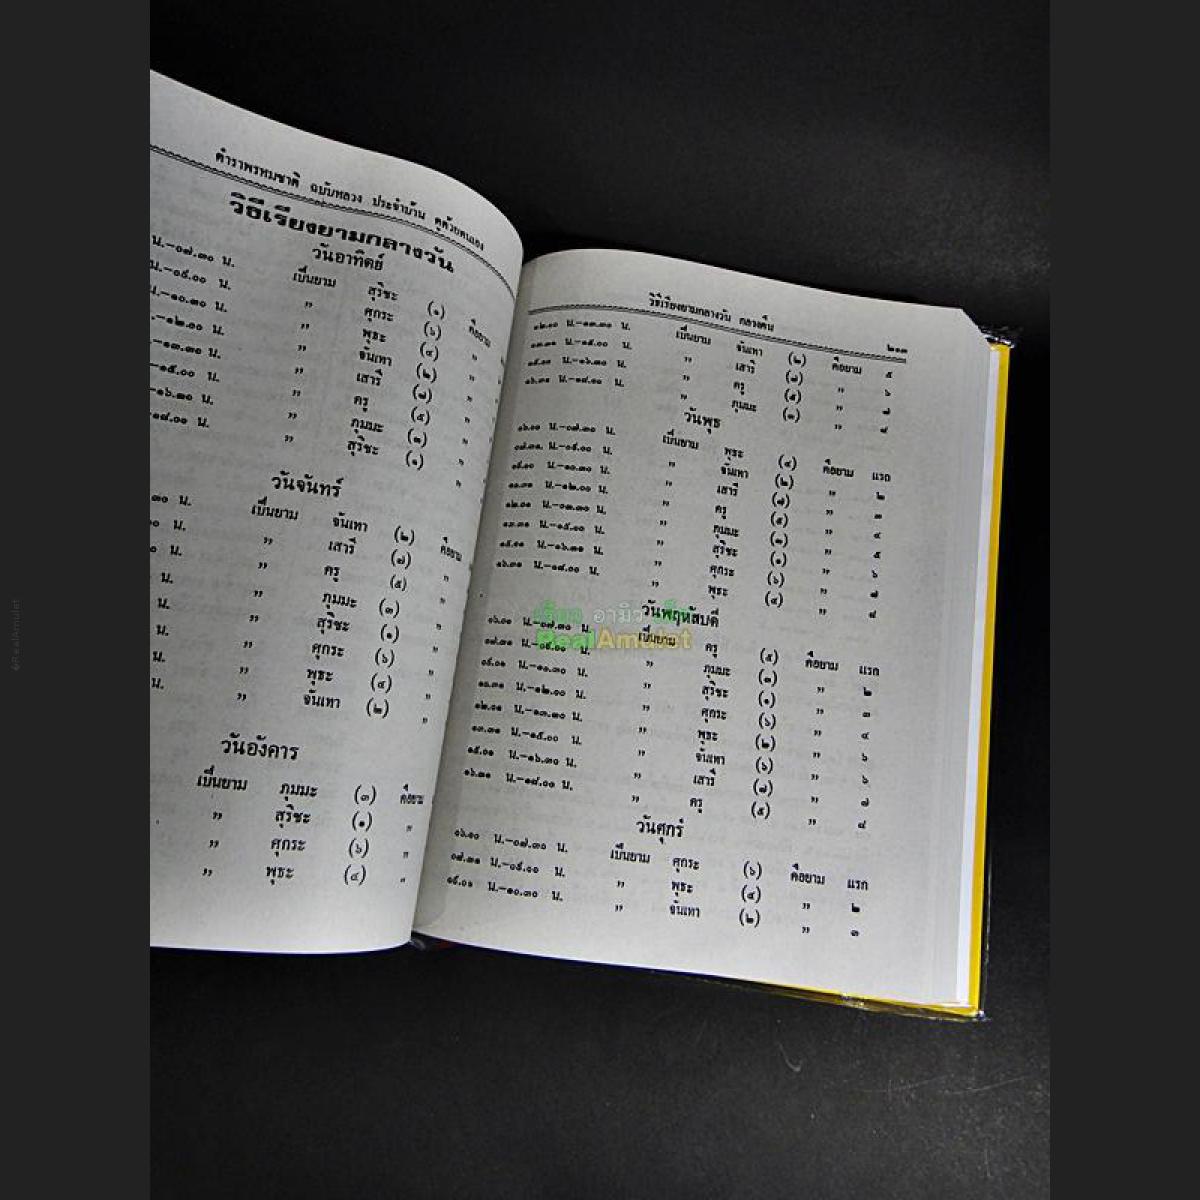 ตำราพรหมชาติ ฉบับหลวง ประจำบ้าน ดูด้วยตนเอง
วิธีเรียงยามกลางวัน
วันอาทิตย์
น.–๐๗.๓๐ น. เป็นยาม สุริชะ (๑) คือยาม
น.–๐๙.๐๐ น. " ศุกระ (๖) "
น.–๑๐.๓๐ น. " พุธะ (๔) "
น.–๑๒.๐๐ น. " จันเทา (๒) "
–๑๓.๓๐ น. " เสารี (๗) "
–๑๕.๐๐ น. " ครู (๕) "
–๑๖.๓๐ น. " ภุมมะ (๓) "
–๑๘.๐๐ น. " สุริชะ (๑) "
วันจันทร์
น. เป็นยาม จันเทา (๒) คือยาม
น. " เสารี (๗) "
น. " ครู (๕) "
น. " ภุมมะ (๓) "
น. " สุริชะ (๑) "
น. " ศุกระ (๖) "
น. " พุธะ (๔) "
น. " จันเทา (๒) "
วันอังคาร
เป็นยาม ภุมมะ (๓) คือยาม
" สุริชะ (๑) "
" ศุกระ (๖) "
" พุธะ (๔) "
วิธีเรียงยามกลางวัน กลางคืน ๒๑๓
๑๒.๐๐ น.–๑๓.๓๐ น. เป็นยาม จันเทา (๒) คือยาม ๕
๑๓.๓๑ น.–๑๕.๐๐ น. " เสารี (๗) " ๖
น.–๑๖.๓๐ น. " ครู (๕) " ๗
๑๖.๓๑ น.–๑๘.๐๐ น. " ภุมมะ (๓) " ๘
วันพุธ
๐๖.๐๐ น.–๐๗.๓๐ น. เป็นยาม พุธะ (๔) คือยาม แรก
๐๗.๓๑ น.–๐๙.๐๐ น. " จันเทา (๒) " ๒
น.–๑๐.๓๐ น. " เสารี (๗) " ๓
๑๐.๓๑ น.–๑๒.๐๐ น. " ครู (๕) " ๔
๑๒.๐๑ น.–๑๓.๓๐ น. " ภุมมะ (๓) " ๕
๑๓.๓๑ น.–๑๕.๐๐ น. " สุริชะ (๑) " ๖
๑๕.๐๑ น.–๑๖.๓๐ น. " ศุกระ (๖) " ๗
๑๖.๓๑ น.–๑๘.๐๐ น. " พุธะ (๔) " ๘
วันพฤหัสบดี
RealAmulet
๐๖.๐๐ น.–๐๗.๓๐ น. เป็นยาม ครู (๕) คือยาม แรก
๐๗.๓๑ น.–๐๙.๐๐ น. " ภุมมะ (๓) " ๒
๐๙.๐๑ น.–๑๐.๓๐ น. " สุริชะ (๑) " ๓
๑๐.๓๑ น.–๑๒.๐๐ น. " ศุกระ (๖) " ๔
๑๒.๐๑ น.–๑๓.๓๐ น. " พุธะ (๒)
๑๓.๓๑ น.–๑๕.๐๐ น. " จันเทา (๖) " ๖
๑๕.๐๑ น.–๑๖.๓๐ น. " เสารี (๗) " ๗
๑๖.๓๑ น.–๑๘.๐๐ น. " ครู (๕) " ๘
วันศุกร์
๐๖.๐๐ น.–๐๗.๓๐ น. เป็นยาม ศุกระ (๖) คือยาม แรก
๐๗.๓๑ น.–๐๙.๐๐ น. " พุธะ (๔) " ๒
๐๙.๐๑ น.–๑๐.๓๐ น. " จันเทา (๒) " ๓
©RealAmulet